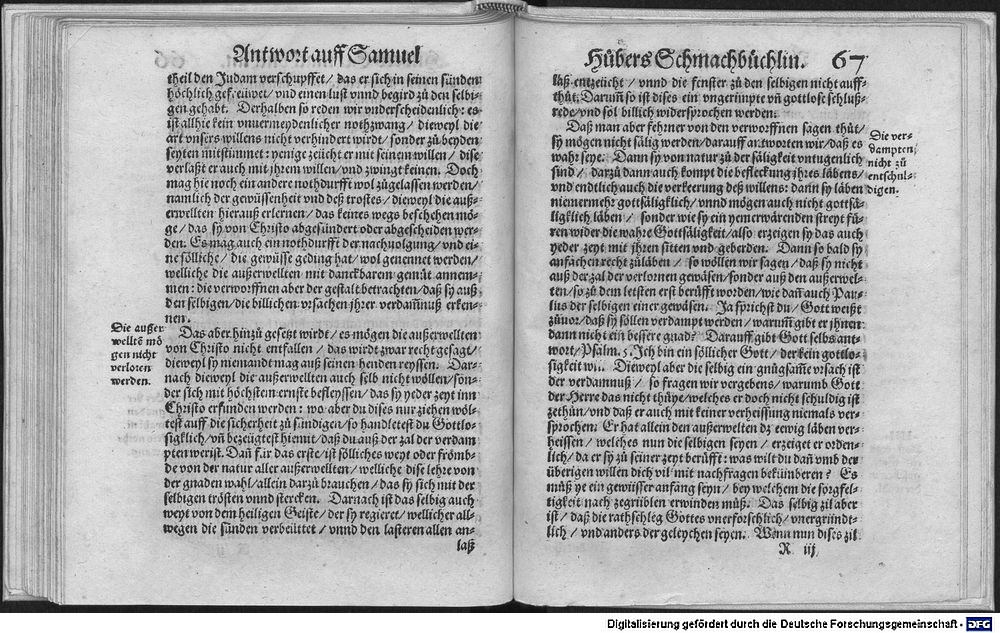 Antwort auff Samuel
theil den Judam verschupffet / das er sich in seinen sünden
höchlich gefreüwet / vnd einen lust vnnd begird zů den selbi-
gen gehabt. Derhalben so reden wir vnderscheidenlich: es
ist allhie kein vnuermeydenlicher nothzwang / dieweyl die
art vnsers willens nicht verhindert wirdt / sonder zů beyden
seyten mitstimmet: yenige zeücht er mit seinem willen / dise
verlaßt er auch mit jhrem willen / vnd zwingt keinen. Doch
mag hie noch ein andere nothdurfft wol zůgelassen werden /
namlich der gewüssenheit vnd deß trostes / dieweyl die auß-
erwellten hierauß erlernen / das keines wegs beschehen mö-
ge / das sy von Christo abgesündert oder abgescheiden wer-
den. Es mag auch ein nothdurfft der nachuolgung / vnd ei-
ne sölliche / die gewüsse geding hat / wol genennet werden /
welliche die außerwellten mit danckbarem gemüt annem-
men: die verworffnen aber der gestalt betrachten / daß sy auß
den selbigen / die billichen vrsachen jhrer verdam̃nuß erken-
nen.
Die außer
wellte mö
gen nicht
verloren
werden.
Das aber hinzů gesetzt wirdt / es mögen die außerwellten
von Christo nicht entfallen / das wirdt zwar recht gesagt /
dieweyl sy niemandt mag auß seinen henden reyssen. Dar-
nach dieweyl die außerwellten auch selb nicht wöllen / son-
der sich mit höchstem ernste befleyssen / das sy yeder zeyt inn
Christo erfunden werden: wo aber du dises nur ziehen wöl-
test auff die sicherheit zů sündigen / so handletest du Gottlo-
sigklich / vñ bezeügtest hiemit / daß du auß der zal der verdam
pten werist. Dañ für das erste / ist sölliches weyt oder frömb-
de von der natur aller außerwellten / welliche dise lehre von
der gnaden wahl / allein darzů brauchen / das sy sich mit der
selbigen trösten vnnd stercken. Darnach ist das selbig auch
weyt von dem heiligen Geiste / der sy regieret / wellicher all-
wegen die sünden verbeüttet / vnnd den lasteren allen an-
laß
Hůbers Schmachbüchlin. 67
laß entzeücht / vnnd die fenster zů den selbigen nicht auff-
thůt. Darumm so ist dises ein vngerimpte vñ gottlose schluß-
rede / vnd sol billich widersprochen werden.
Daß man aber fehrner von den verworffnen sagen thůt /
sy mögen nicht sälig werden / darauff antworten wir / daß es
wahr seye. Dann sy von natur zů der säligkeit vntugenlich
sind / darzů dann auch kompt die befleckung jhres läbens /
vnd endtlich auch die verkeerung deß willens: dann sy läben
niemermehr gottsäligklich / vnnd mögen auch nicht gottsä-
ligklich läben / sonder wie sy ein yemerwärenden streyt fü-
ren wider die wahre Gottsäligkeit / also erzeigen sy das auch
yeder zeyt mit jhren sitten vnd geberden. Dann so bald sy
anfachen recht zůläben / so wöllen wir sagen / daß sy nicht
auß der zal der verlornen gewäsen / sonder auß den außerwel-
ten / so zů dem letsten erst berüfft worden / wie dañ auch Pau-
lus der selbigen einer gewäsen. Ja sprichst du / Gott weißt
zůuor / daß sy söllen verdampt werden / warumm gibt er jhnen
dann nicht ein bessere gnad? Darauff gibt Gott selbs ant-
wort / Psalm. 5. Ich bin ein söllicher Gott / der kein gottlo-
sigkeit wil. Dieweyl aber die selbig ein gnůgsame vrsach ist
der verdamnuß / so fragen wir vergebens / warumb Gott
der Herre das nicht thüye / welches er doch nicht schuldig ist
zethůn / vnd daß er auch mit keiner verheissung niemals ver-
sprochen: Er hat allein den außerwelten dz eewig läben ver-
heissen / welches nun die selbigen seyen / erzeiget er orden-
lich / da er sy zů seiner zeyt berüfft: was wilt du dañ vmb der
überigen willen dich vil mit nachfragen bekümberen? Es
můß ye ein gewüsser anfang seyn / bey welchem die sorgfel-
tigkeit nach zegriblen erwinden můß. Das selbig zil aber
ist / daß die rathschleg Gottes vnerforschlich / vnergründt-
lich / vnd anders der geleychen seyen. Wenn nun dises zil
Die ver-
dampten,
nicht zů
entschul-
digen.
R iij
Digitalisierung gefördert durch die Deutsche Forschungsgemeinschaft - DFG